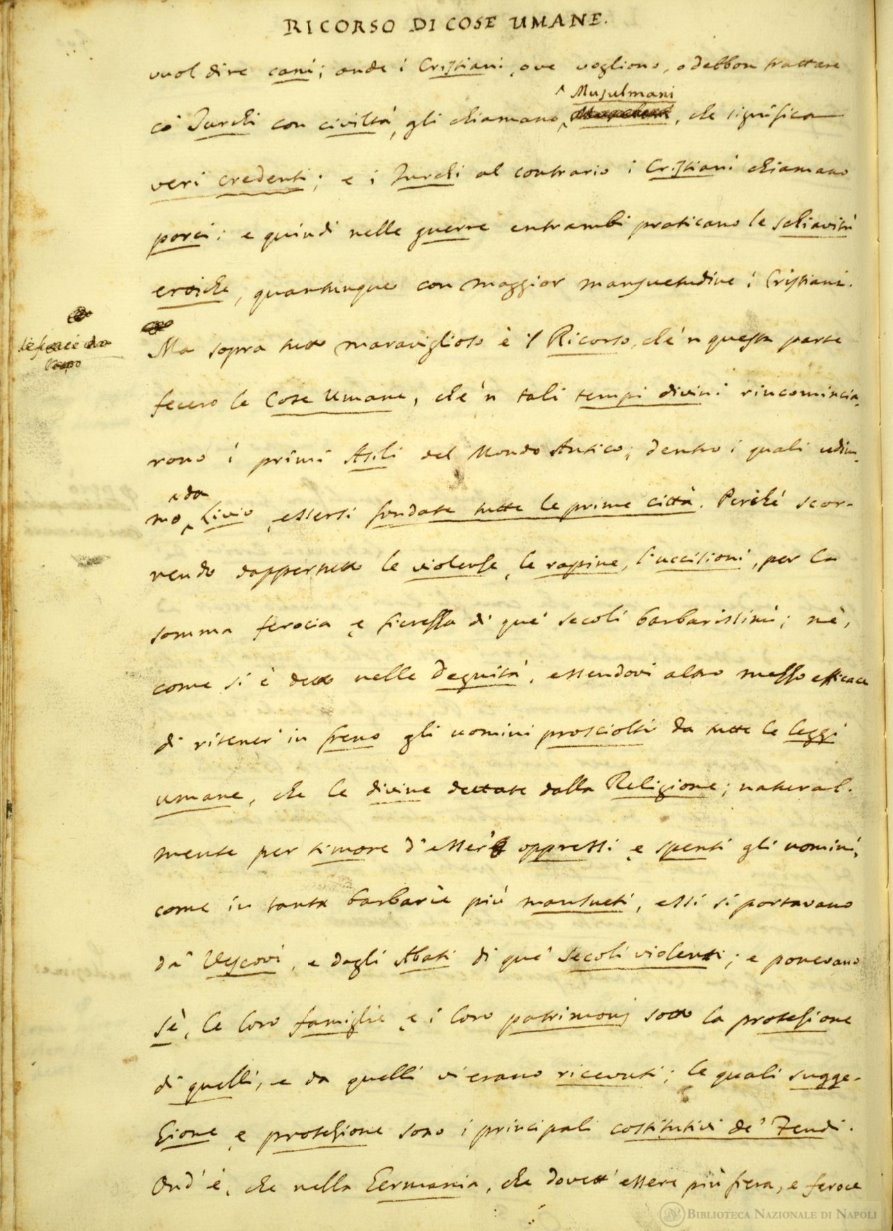 RICORSO DI COSE UMANE.
vuol dire cani; onde i Cristiani, ove vogliono, o debbon trattare
Musulmani
co' Turchi con civiltà, gli chiamano, che significa
veri credenti; e i Turchi al contrario i Cristiani chiamano
porci: e quindi nelle guerre entrambi praticano le schiavitù
eroiche, quantunque con maggior mansuetudine i Cristiani.
Ma sopra tutto maraviglioso è 'l Ricorso, che 'n questa parte
fecero le Cose Umane, che 'n tali tempi divini rincomincia-
rono i primi Asili del Mondo Antico; dentro i quali udim-
da
mo Livio, essersi fondate tutte le prime città. Perché scor-
rendo dappertutto le violenze, le rapine, l'uccisioni, per la
somma ferocia e fierezza di que' secoli barbarissimi; né,
come si è detto nelle Degnità, essendovi altro mezzo efficace
di ritener in freno gli uomini prosciolti da tutte le leggi
umane, che le divine dettate dalla Religione; natural-
mente per timore d'esser oppressi e spenti gli uomini,
come in tanta barbarie più mansueti, essi si portavano
da' Vescovi, e dagli Abati di que' secoli violenti; e ponevano
sè, le loro famiglie e i loro patrimonj sotto la protezione
di quelli, e da quelli vi erano ricevuti; le quali sugge-
zione e protezione sono i principali costitutivi de' Feudi.
Ond' è, che nella Germania, che dovett' essere più fiera, e feroce
BIBLIOTECA NAZIONALE DI NAPOLI